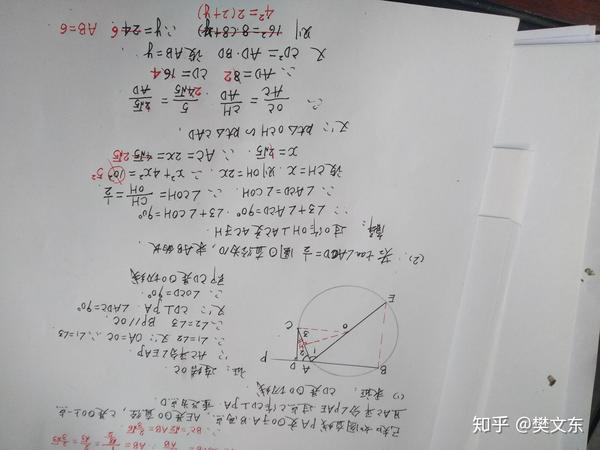 已知:如图直线PA交⊙O于A.B两点, AE是⊙O直径, C是⊙O上一点
且AC平分∠PAE 过点C作CD⊥PA 垂足为点D
(1) 求证: CD是⊙O切线
证: 连接OC
∵ AC平分∠EAP
∴ ∠1=∠2 又∵ OA=OC ∴ ∠1=∠3
∴ ∠2=∠3 ∴ BP//OC
又∵ CD⊥PA ∠ADC=90°
∴ ∠OCD=90°
即CD是⊙O切线
P D A B
1 2 3
C O E
(2). 若tan∠ACD=1/2 圆O直径为10, 求AB的长
解: 过O作OH⊥AC交AC于H
∵ ∠3+∠ACD=90° ∠3+∠COH=90°
∴ ∠ACD=∠COH. ∴ ∠COH=CH/OH=1/2
设CH=x 则OH=2x ∴ x²+4x²=10² 5²
∴ AC=2x=4√5 2√5
又∵ Rt△OCH∽Rt△CAD.
∴ OC/AC=CH/AD
∴ AD=8 2 CD=16 4
又 CD²=AD·BD 设AB=y
则 16²=8(8+y) ∴ y=24 6 AB=6
4²=2(2+y)
知乎 @樊文东